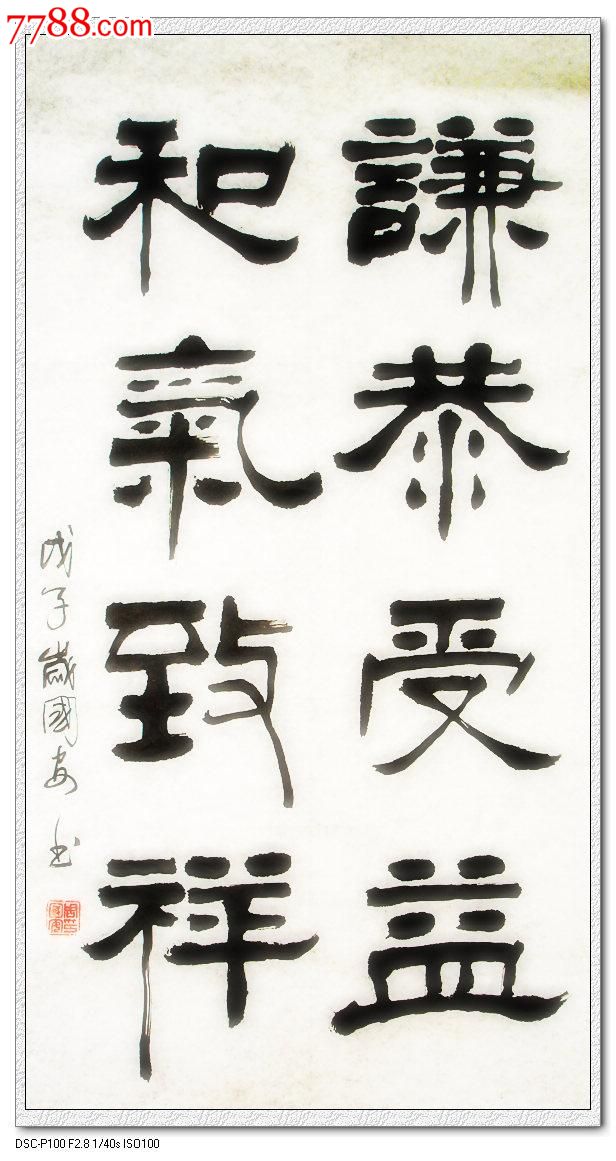 7788.com
謙恭受益
和氣致祥
戊子歲國安书
DSC-P100 F2.8 1/40s ISO100